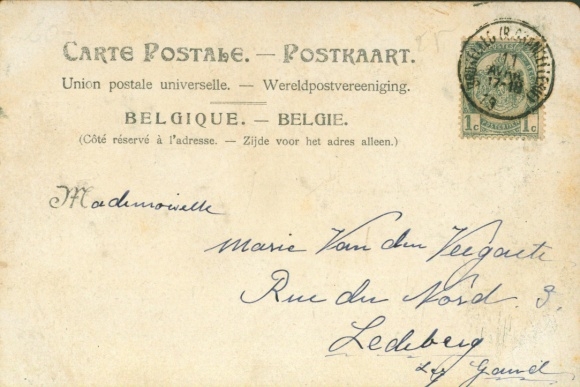 CARTE POSTALE. — POSTKAART.
Union postale universelle. — Wereldpostvereeniging.
BELGIQUE. — BELGIE.
(Côté réservé à l'adresse. — Zijde voor het adres alleen.)
1c 1c
Mademoiselle
Marie Van den
Rue du Nord 3.
Ledeberg
Lez Gand